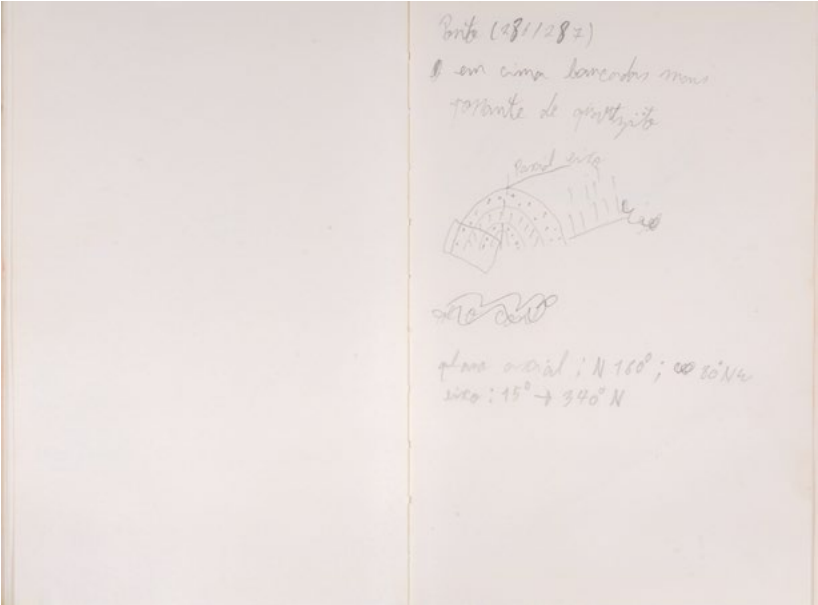 Ponto (281/287)
em cima bancadas mais
possante de quartzito
axial eixo
plano axial : N 160° ; 80° NE
eixo : 15° → 340° N